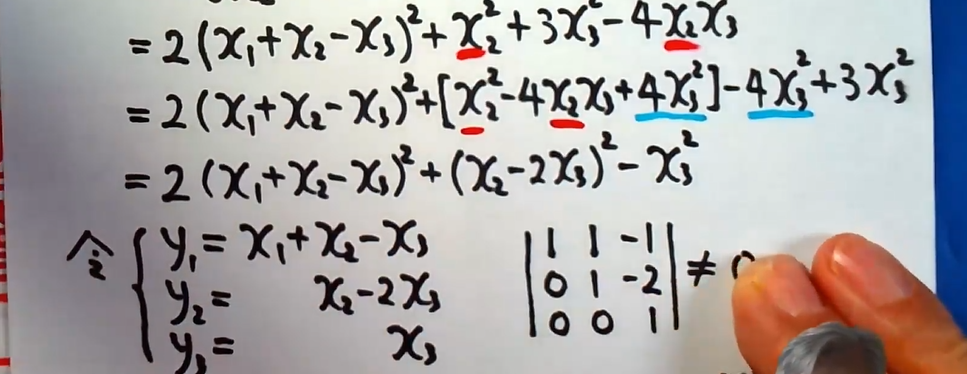 = 2(x₁+x₂-x₃)²+x₂²+3x₃²-4x₂x₃
= 2(x₁+x₂-x₃)²+[x₂²-4x₂x₃+4x₃²]-4x₃²+3x₃²
= 2(x₁+x₂-x₃)²+(x₂-2x₃)²-x₃²
令 { y₁= x₁+x₂-x₃
y₂= x₂-2x₃
y₃= x₃
| 1 1 -1 |
| 0 1 -2 | ≠
| 0 0 1 |